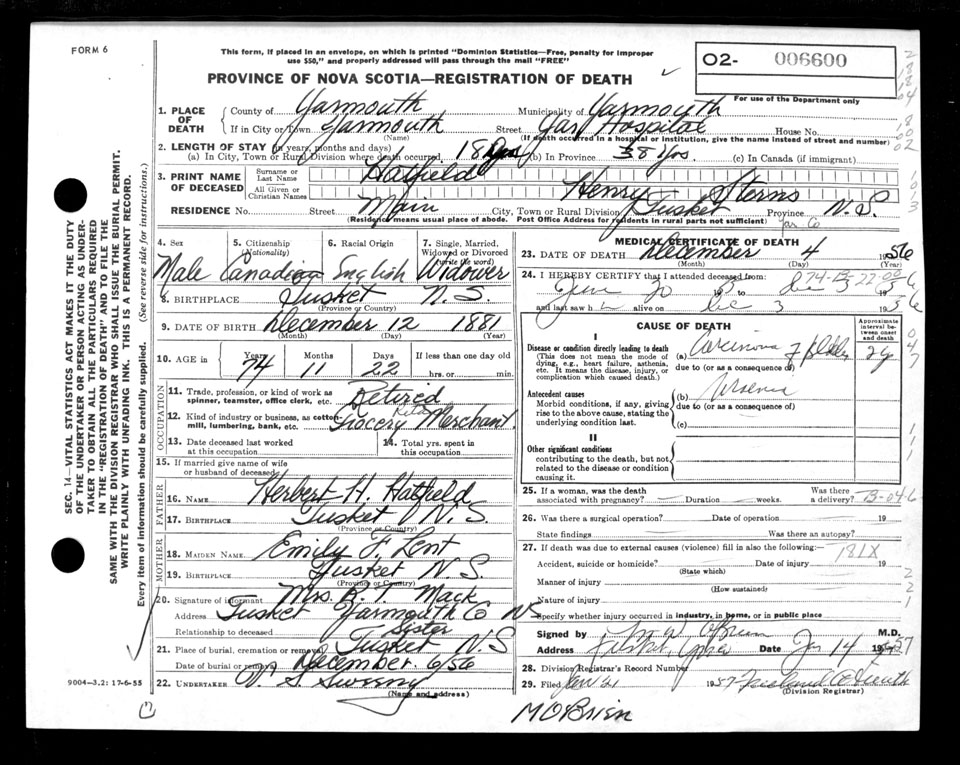 FORM 6
This form, if placed in an envelope, on which is printed "Dominion Statistics—Free, penalty for improper
use $50," and properly addressed will pass through the mail "FREE"
PROVINCE OF NOVA SCOTIA—REGISTRATION OF DEATH
O2- 006600
For use of the Department only
1. PLACE OF DEATH
County of Yarmouth Municipality of Yarmouth
If in City or Town Yarmouth Street Yar Hospital House No.
(Name) (If death occurred in a hospital or institution, give the name instead of street and number)
2. LENGTH OF STAY (in years, months and days)
(a) In City, Town or Rural Division where death occurred, 18 (b) In Province 38 yrs. (c) In Canada (if immigrant)
3. PRINT NAME OF DECEASED
Surname or Last Name Hatfield
All Given or Christian Names Henry Sterns
RESIDENCE No. Street Main City, Town or Rural Division Tusket Province N.S.
(Residence means usual place of abode. Post Office Address for residents in rural parts not sufficient) Yar Co
4. Sex Male
5. Citizenship (Nationality) Canadian
6. Racial Origin English
7. Single, Married, Widowed or Divorced (write the word) Widower
8. BIRTHPLACE Tusket N.S.
(Province or Country)
9. DATE OF BIRTH December 12 1881
(Month) (Day) (Year)
10. AGE in Years 74 Months 11 Days 22 If less than one day old
hrs. or min.
OCCUPATION
11. Trade, profession, or kind of work as spinner, teamster, office clerk, etc. Retired
12. Kind of industry or business, as cotton-mill, lumbering, bank, etc. Retail Grocery Merchant.
13. Date deceased last worked at this occupation
14. Total yrs. spent in this occupation
15. If married give name of wife or husband of deceased
FATHER
16. NAME Herbert H. Hatfield
17. BIRTHPLACE Tusket N.S.
(Province or Country)
MOTHER
18. MAIDEN NAME Emily F. Lent
19. BIRTHPLACE Tusket N.S.
(Province or Country)
20. Signature of informant Mrs. R. T. Mack
Address Tusket Yarmouth Co NS
Relationship to deceased Sister
21. Place of burial, cremation or removal Tusket N.S
Date of burial or removal December 6/56
22. UNDERTAKER V. S. Sweeny
(Name and address)
MEDICAL CERTIFICATE OF DEATH
23. DATE OF DEATH December 4 1956
(Month) (Day) (Year)
24. I HEREBY CERTIFY that I attended deceased from
June 30 to Dec 3 1956
and last saw h alive on Dec 3 1956
CAUSE OF DEATH
Approximate interval between onset and death
I
Disease or condition directly leading to death
(This does not mean the mode of dying, e.g., heart failure, asthenia, etc. It means the disease, injury, or complication which caused death.)
(a) Carcinoma of bladder 2 y
due to (or as a consequence of)
Antecedent causes
Morbid conditions, if any, giving rise to the above cause, stating the underlying condition last.
(b) Uraemia
due to (or as a consequence of)
(c)
II
Other significant conditions
contributing to the death, but not related to the disease or condition causing it.
25. If a woman, was the death associated with pregnancy? Duration weeks. Was there a delivery?
26. Was there a surgical operation? Date of operation 19
State findings Was there an autopsy?
27. If death was due to external causes (violence) fill in also the following:— 181X
Accident, suicide or homicide? Date of injury 19
(State which)
Manner of injury
(How sustained)
Nature of injury
Specify whether injury occurred in industry, in home, or in public place
Signed by M. W. O'Brien M.D.
Address Date Jan 14 1957
28. Division Registrar's Record Number
29. Filed Jan 21 1957
(Division Registrar)
M O'Brien
SEC. 14—VITAL STATISTICS ACT MAKES IT THE DUTY
OF THE UNDERTAKER OR PERSON ACTING AS UNDER-
TAKER TO OBTAIN ALL THE PARTICULARS REQUIRED
IN THE "REGISTRATION OF DEATH" AND TO FILE THE
SAME WITH THE DIVISION REGISTRAR WHO SHALL ISSUE THE BURIAL PERMIT.
WRITE PLAINLY WITH UNFADING INK. THIS IS A PERMANENT RECORD.
Every item of information should be carefully supplied. (See reverse side for instructions.)
9004—3.2: 17-6-55